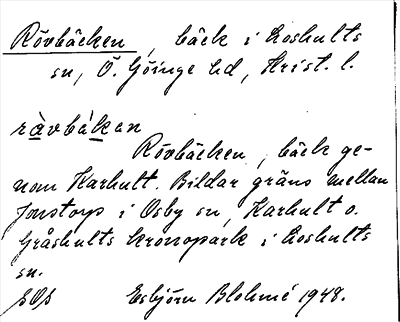 Rövbäcken, bäck i Loshults
sn, Ö. Göinge hd, Krist. l.
rävbäkan
Rövbäcken, bäck ge-
nom Karhult. Bildar gräns mellan
Jonstorp i Osby sn, Karhult o.
Gråshults kronopark i Loshults
sn.
Esbjörn Blohmé 1948.